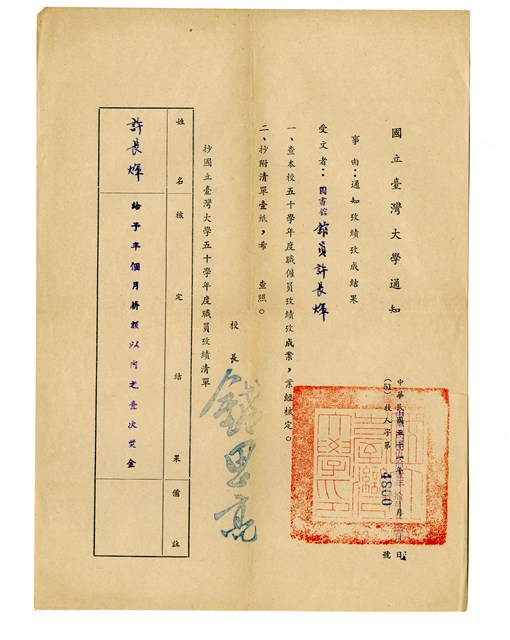 國立臺灣大學通知
中華民國五十一年 月 日
(51)校人字第4800號
事由：通知攷績攷成結果
受文者：圖書館 館員許長煇
一、查本校五十學年度職僱員攷績攷成業，業經核定。
二、抄附清單壹紙，希 查照。
校長 錢思亮
抄國立臺灣大學五十學年度職員攷績清單
姓名 核定結果 備註
許長煇 給予半個月薪額以內之壹次獎金